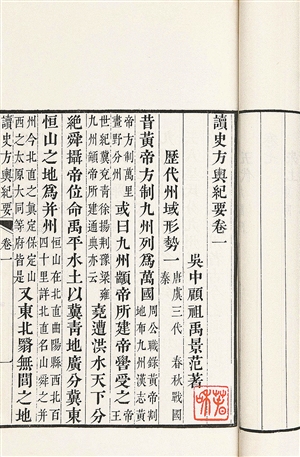 讀史方輿紀要卷一
吳中顧祖禹景范著
歷代州域形勢一 唐虞三代 春秋戰國 秦
昔黃帝方制九州列爲萬國 周公職錄黃帝割地布九州漢志黃
帝方制萬里畫野分州 或曰九州顓帝所建帝嚳受之 王
世紀冀兗青徐揚荊豫梁雍九州顓帝所建通典亦云 堯遭洪水天下分
絕舜攝帝位命禹平水土以冀青地廣分冀東
恒山之地爲并州 恒山在北直曲陽縣西北百四十里詳北直名山舜并
州今北直之真定保定山西之太原大同等府皆是 又東北醫無閭之地
讀史方輿紀要 卷一